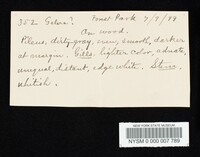 352 Galera? Forest Park 7/9/79
On wood.
Pileus, dirty gray, even, smooth, darker
at margin. Gills lighter color, adnate,
unequal, distant, edge white. Stem
whitish.
NEW YORK STATE MUSEUM
NYSM 0 000 007 789